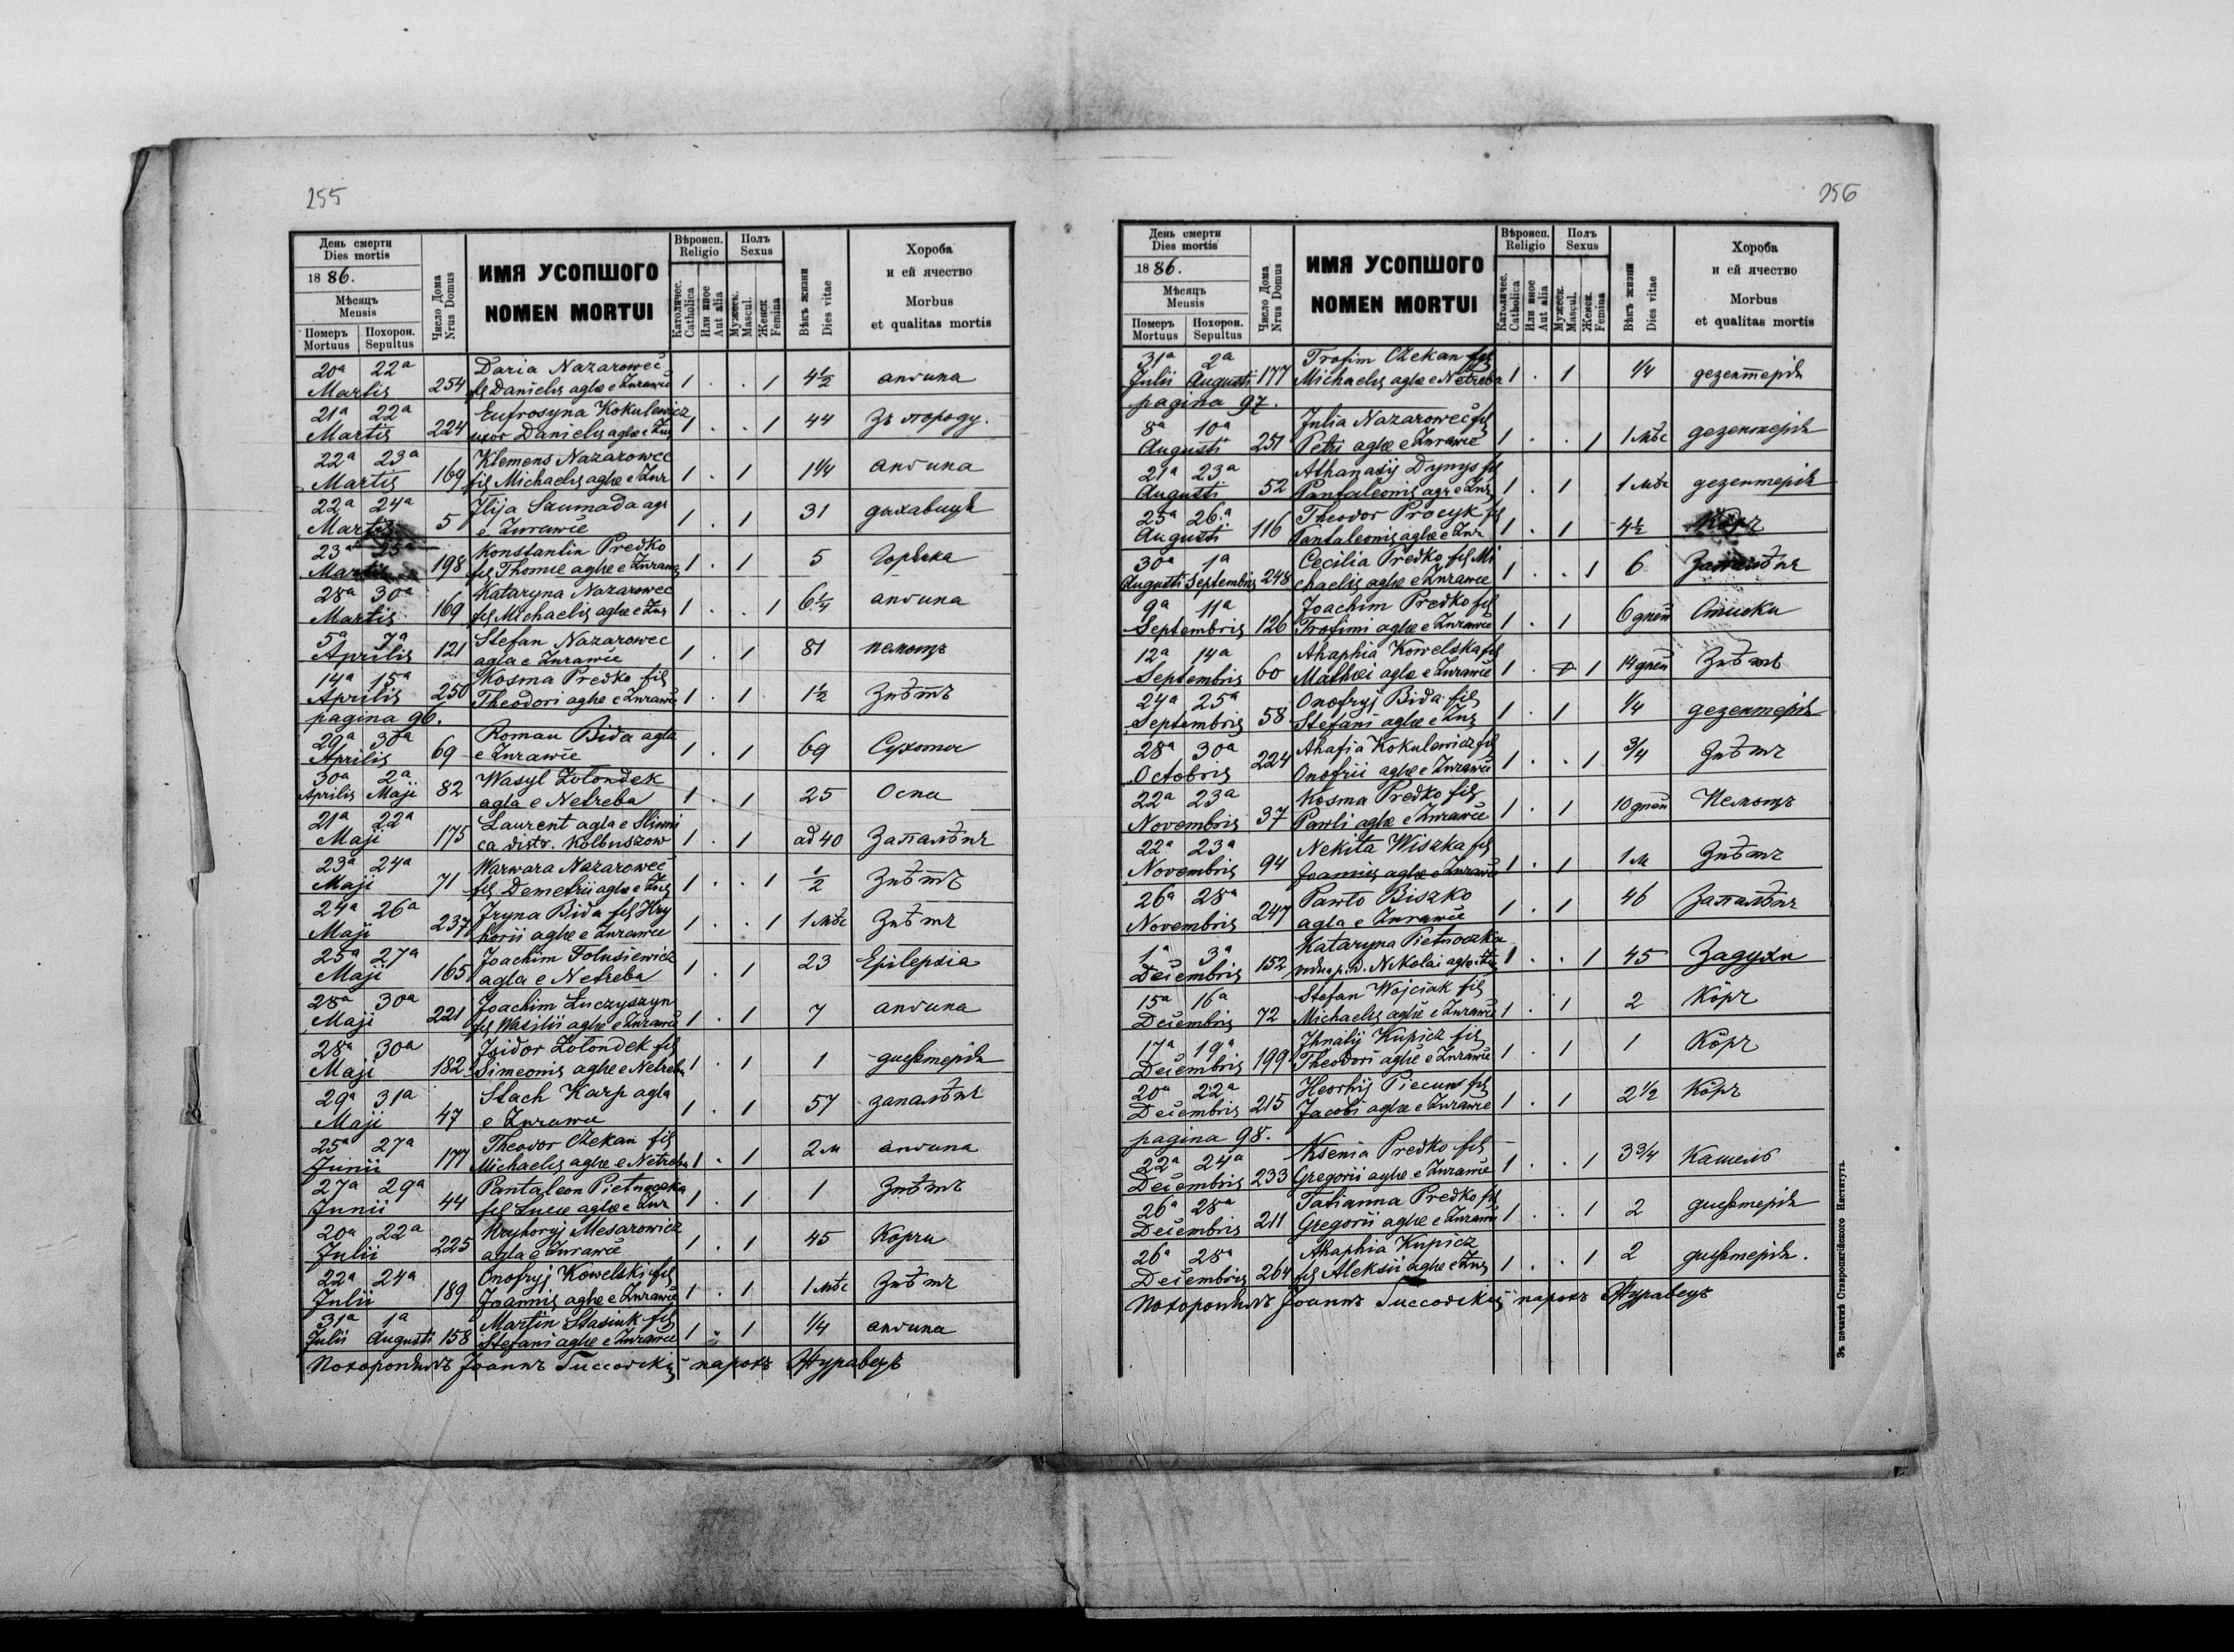 255
День смерти Dies mortis
1886.
Мѣсяцъ Mensis
Померъ Mortuus
Похорон. Sepultus
Число Дома Nrus Domus
ИМЯ УСОПШОГО
NOMEN MORTUI
Вѣроисп. Religio
Католичес. Catholica
Или иное Aut alia
Полъ Sexus
Мужеск. Mascul.
Женск. Femina
Вѣкъ жизни Dies vitae
Хороба
и ей ячество
Morbus
et qualitas mortis
20a 22a Daria Nazarowec
Martis 254 fil Danielis aglae e Żurawce 1 . . 1 4½ ангина
21a 22a Eufrosyna Kokulewicz
Martis 224 uxor Danielis aglae e Żur 1 . . 1 44 Зъ породу.
22a 23a Klemens Nazarowec
Martis 169 fil Michaelis aglae e Żur 1 . 1 1¼ ангина
22a 24a Ilija Szumada agr
Martis 5 e Żurawce 1 . 1 31 дыхавиця
23a 25a Konstantin Predko
Martis 198 fil Thomae aglae e Żuraw 1 . 1 5 Горячка
28a 30a Kataryna Nazarowec
Martis 169 fil Michaelis aglae e Żur 1 . . 1 6¼ ангина
5a 7a Stefan Nazarowec
Aprilis 121 agla e Żurawce 1 . 1 81 немощъ
14a 15a Kosma Predko fil
Aprilis 250 Theodori aglae e Żurawce 1 . 1 1½ Знѣтъ
pagina 96.
29a 30a Roman Bida agla
Aprilis 69 e Żurawce 1 . 1 69 Сухоты
30a 2a Wasyl Żolondek
Aprilis Maji 82 agla e Netreba 1 . 1 25 Оспа
21a 22a Laurent agla e Sliwni
Maji 175 ca distr. Kolbuszow 1 . 1 ad 40 Запалѣнъ
23a 24a Warwara Nazarowec
Maji 71 fil Demetrii aglae e Żur 1 . . 1 ½ Знѣтъ
24a 26a Iryna Bida fil Hry
Maji 237 horii aglae e Żurawce 1 . . 1 1 мѣс Знѣтъ
25a 27a Joachim Folusiewicz
Maji 165 agla e Netreba 1 . 1 23 Epilepsia
28a 30a Joachim Łuczyszyn
Maji 221 fil Wasilii aglae e Żurawce 1 . 1 7 ангина
28a 30a Isidor Żolondek fil
Maji 182 Simeonis aglae e Netreba 1 . 1 1 дифтерія
29a 31a Stach Karp agla
Maji 47 e Żurawce 1 . 1 57 запалѣнъ
25a 27a Theodor Czekan fil
Junii 177 Michaelis aglae e Netreba 1 . 1 2 м ангина
27a 29a Pantaleon Pietnoczka
Junii 44 fil Lucae aglae e Żur 1 . 1 1 Знѣтъ
20a 22a Hryhoryj Mesarowicz
Julii 225 agla e Żurawce 1 . 1 45 Корчи
22a 24a Onofryj Kowelski fil
Julii 189 Joannis aglae e Żurawce 1 . 1 1 мѣс Знѣтъ
31a 1a Martin Stasiuk fil
Julii Augusti 158 Stefani aglae e Żurawce 1 . 1 ¼ ангина
Похоронилъ Іоаннъ парохъ Журавецъ
256
День смерти Dies mortis
1886.
Мѣсяцъ Mensis
Померъ Mortuus
Похорон. Sepultus
Число Дома Nrus Domus
ИМЯ УСОПШОГО
NOMEN MORTUI
Вѣроисп. Religio
Католичес. Catholica
Или иное Aut alia
Полъ Sexus
Мужеск. Mascul.
Женск. Femina
Вѣкъ жизни Dies vitae
Хороба
и ей ячество
Morbus
et qualitas mortis
31a 2a Trofim Czekan fil
Julii Augusti 177 Michaelis aglae e Netreba 1 . 1 ¼ дезентерія
pagina 97.
8a 10a Julia Nazarowec fil
Augusti 251 Petri aglae e Żurawce 1 . . 1 1 мѣс дезентерія
21a 23a Athanasij Dynys fil
Augusti 52 Pantaleonis agr e Żur 1 . 1 1 мѣс дезентерія
25a 26a Theodor Procyk fil
Augusti 116 Pantaleonis aglae e Żur 1 . 1 4½ Кöръ
30a 1a Cecilia Predko fil Mi
Augusti Septembris 248 chaelis aglae e Żurawce 1 . . 1 6 Запалѣнъ
9a 11a Joachim Predko fil
Septembris 126 Trofimi aglae e Żurawce 1 . 1 6 дней Стиски
12a 14a Ahaphia Kowelska fil
Septembris 60 Mathaei aglae e Żurawce 1 . 1 14 дней Знѣтъ
24a 25a Onofryj Bida fil
Septembris 58 Stefani aglae e Żur 1 . 1 ¼ дезентерія
28a 30a Ahafia Kokulewicz fil
Octobris 224 Onofrii aglae e Żurawce 1 . . 1 ¾ Знѣтъ
22a 23a Kosma Predko fil
Novembris 37 Pawli aglae e Żurawce 1 . 1 10 дней Немощъ
22a 23a Nekita Wiszka fil
Novembris 94 Joannis aglae e Żurawce 1 . 1 1 м Знѣтъ
26a 28a Pawlo Biszko
Novembris 247 agla e Żurawce 1 . 1 46 Запалѣнъ
1a 3a Kataryna Pietnoczka
Decembris 152 vidua p. d. Nikolai aglae e Żur 1 . . 1 45 Задухи
15a 16a Stefan Wojciak fil
Decembris 72 Michaelis aglae e Żurawce 1 . 1 2 Кöръ
17a 19a Ihnatij Kupicz fil
Decembris 199 Theodori aglae e Żurawce 1 . 1 1 Кöръ
20a 22a Heorhij Piecuns fil
Decembris 215 Jacobi aglae e Żurawce 1 . 1 2½ Кöръ
pagina 98.
22a 24a Ksenia Predko fil
Decembris 233 Gregorii aglae e Żurawce 1 . . 1 3¾ Кашель
26a 28a Tatianna Predko fil
Decembris 211 Gregorii aglae e Żurawce 1 . . 1 2 дифтерія
26a 28a Ahaphia Kupicz
Decembris 264 fil Aleksii aglae e Żur 1 . . 1 2 дифтерія.
Похоронилъ Іоаннъ парохъ Журавецъ
Зъ печатнѣ Ставропигійского Института.